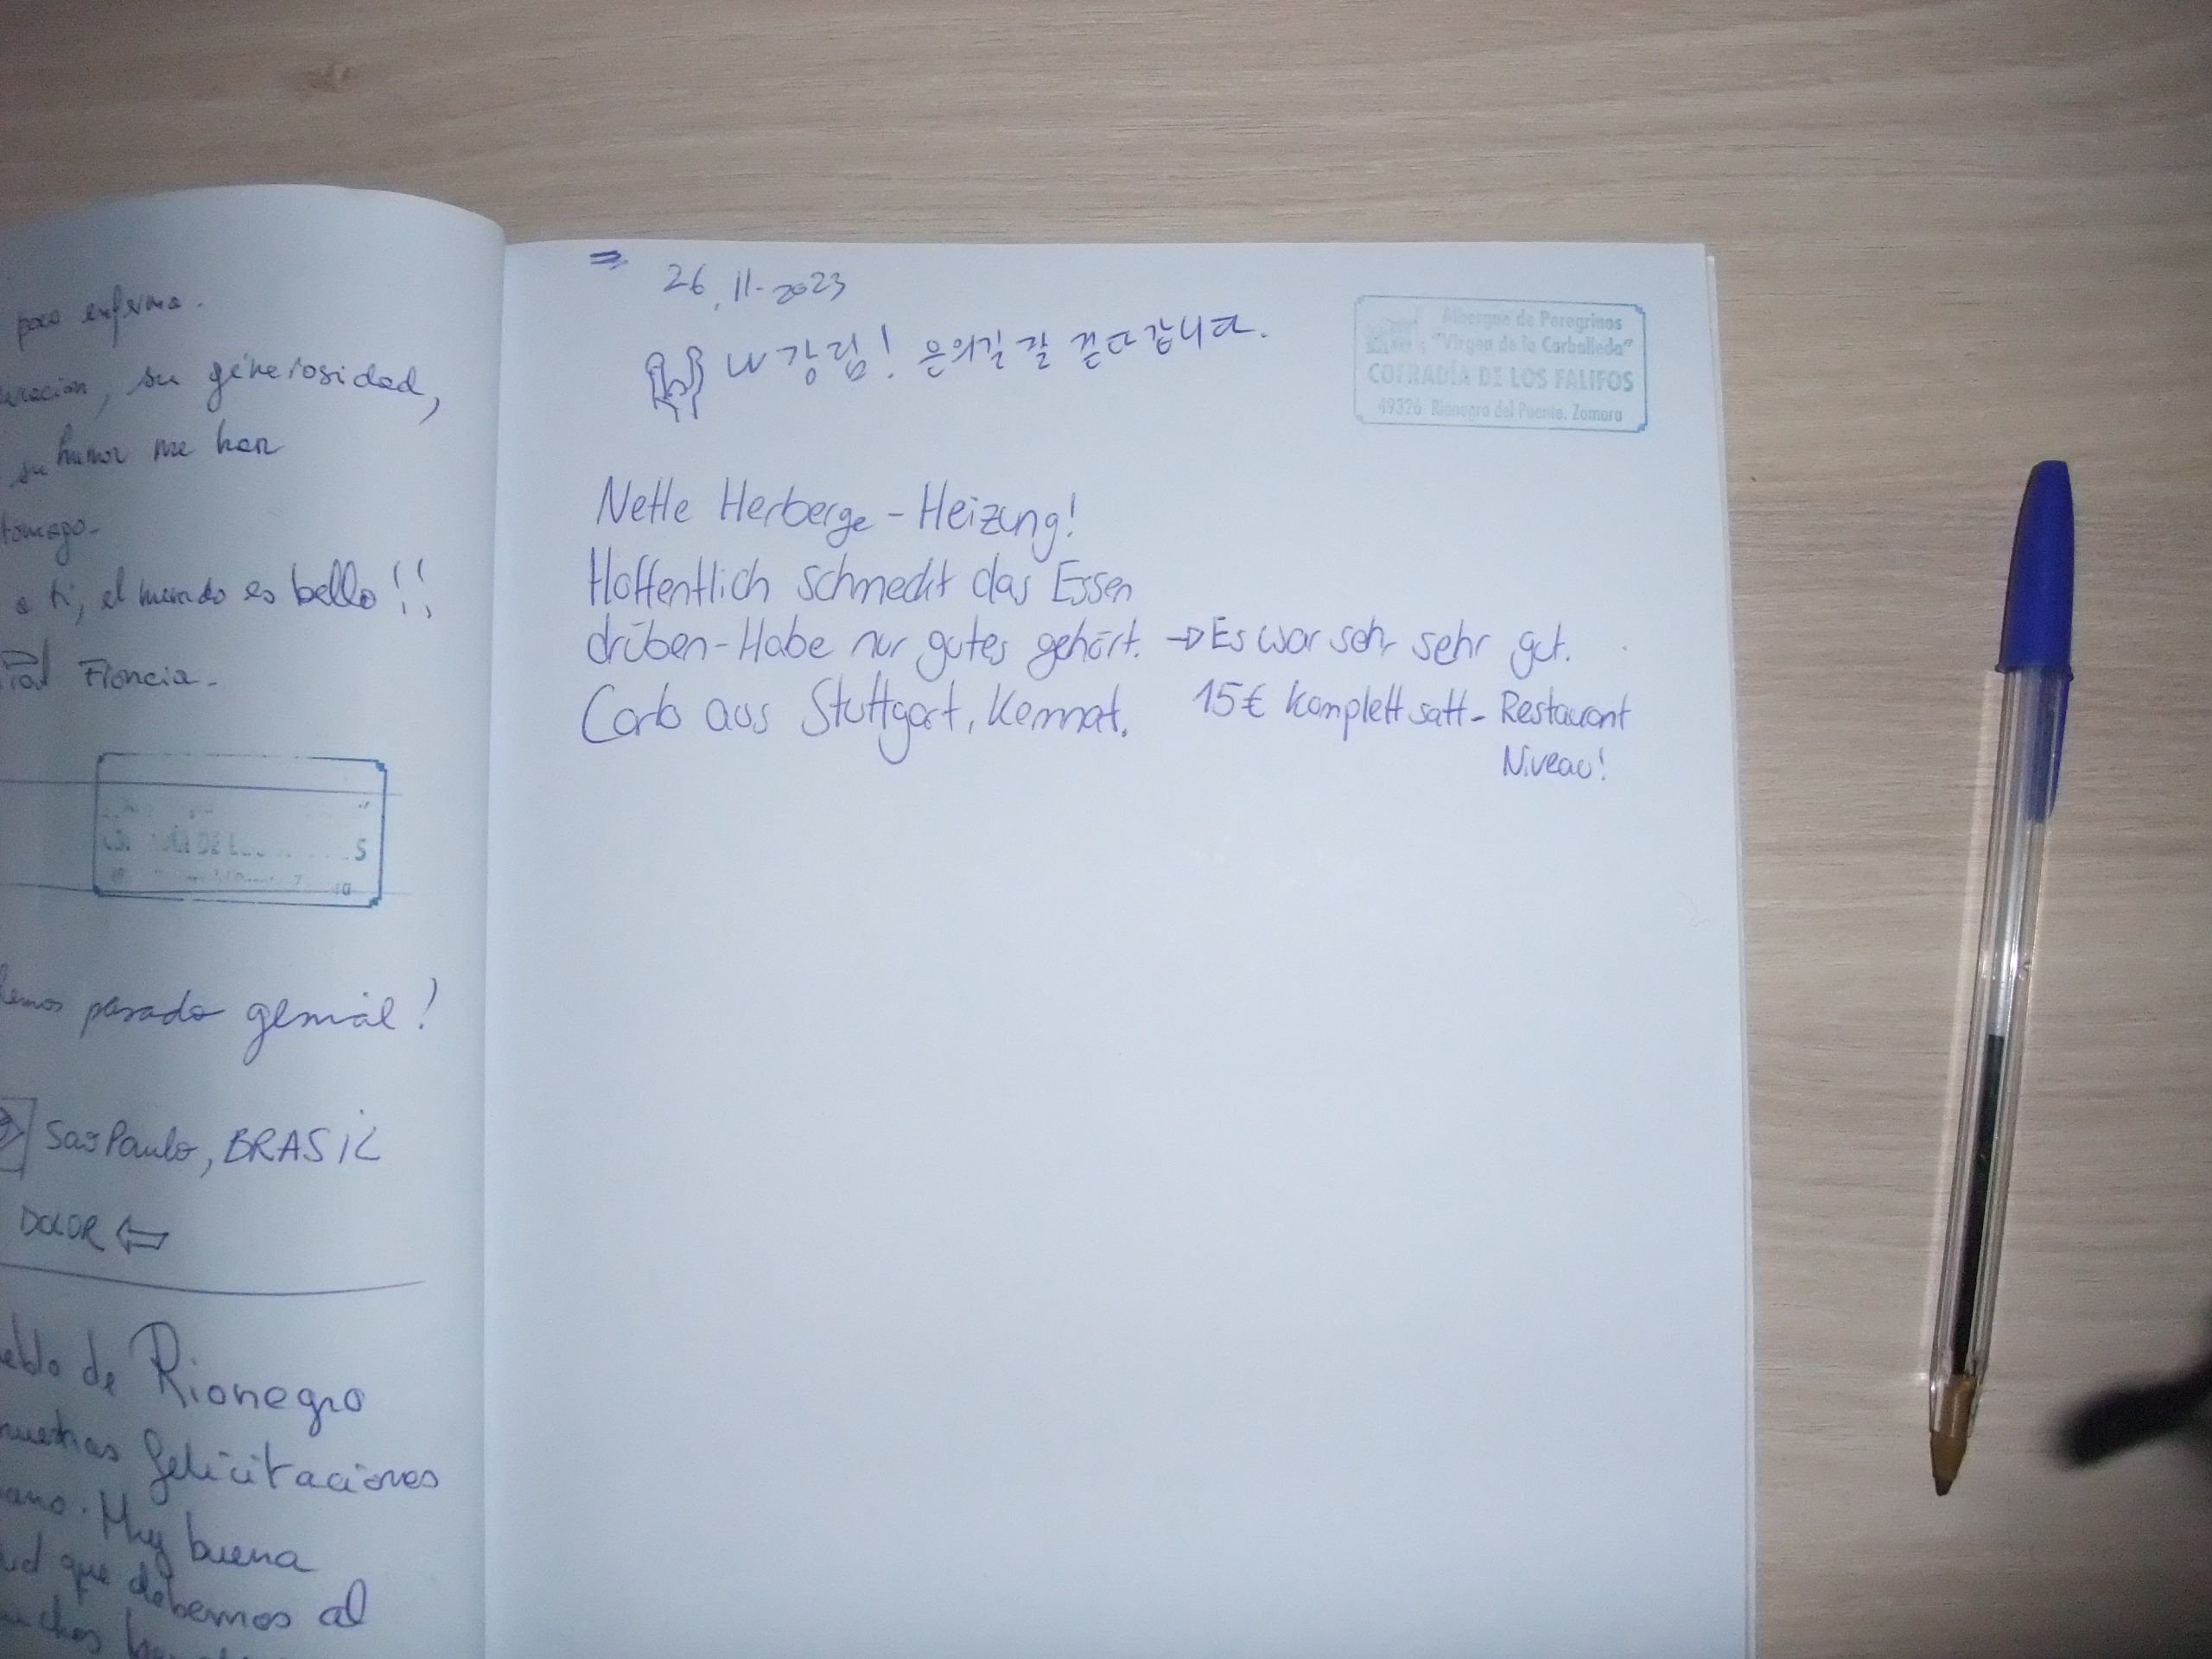 poco enferma.
su generosidad,
su humor me han
a ti, el mundo es bello!!
Florencia.
pasado genial!
Sao Paulo, BRASIL
DOLOR
de Rionegro
felicitaciones
Muy buena
que debemos al
26.11-2023
강림! 은의길 잘 끝다갑니다.
Albergue de Peregrinos
"Virgen de la Carballeda"
COFRADÍA DE LOS FALIFOS
49326 Rionegro del Puente. Zamora
Nette Herberge - Heizung!
Hoffentlich schmeckt das Essen
drüben - Habe nur gutes gehört. → Es war sehr sehr gut.
Carb aus Stuttgart, Kemnat. 15€ Komplett satt - Restaurant
Niveau!